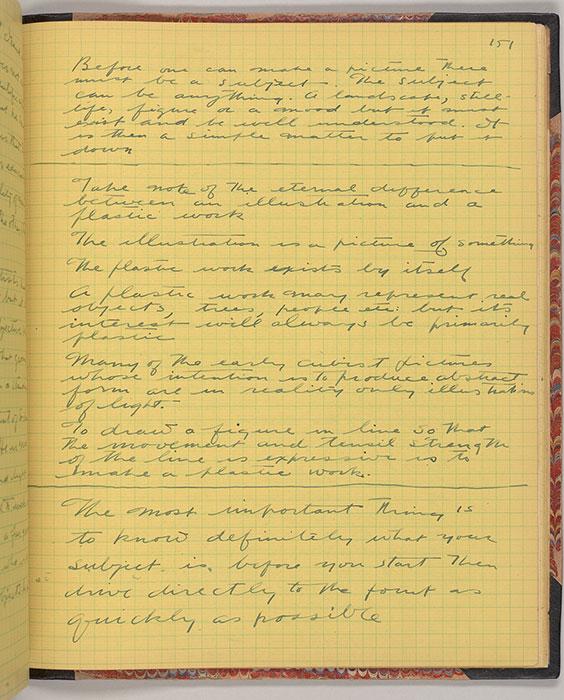 151
Before one can make a picture there
must be a subject. The subject
can be anything. A landscape, still-
life, figure or a mood but it must
exist and be well understood. It
is then a simple matter to put it
down
Take note of the eternal difference
between an illustration and a
plastic work
The illustration is a picture of something
The plastic work exists by itself
A plastic work may represent real
objects, trees, people etc. but its
interest will always be primarily
plastic
Many of the early cubist pictures
whose intention is to produce abstract
form are in reality only illustrations
of light.
To draw a figure in line so that
the movement and tensil strength
of the line is expressive is to
make a plastic work.
The most important thing is
to know definitely what your
subject is before you start then
drive directly to the point as
quickly as possible